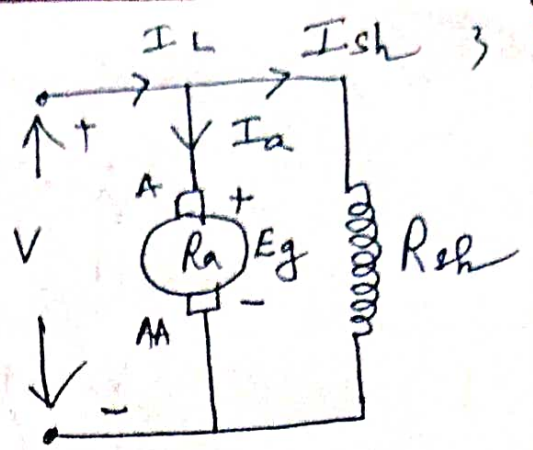 IL Ish 3
+ Ia
A +
V Ra Eg Rsh
AA -
-